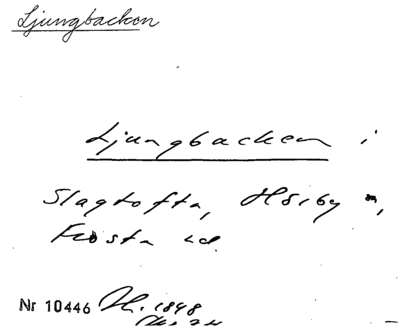 Ljungbacken
Ljungbacken i
Slagtofta, Hörby sn,
Frosta hd.
Nr 10446 H. 1848